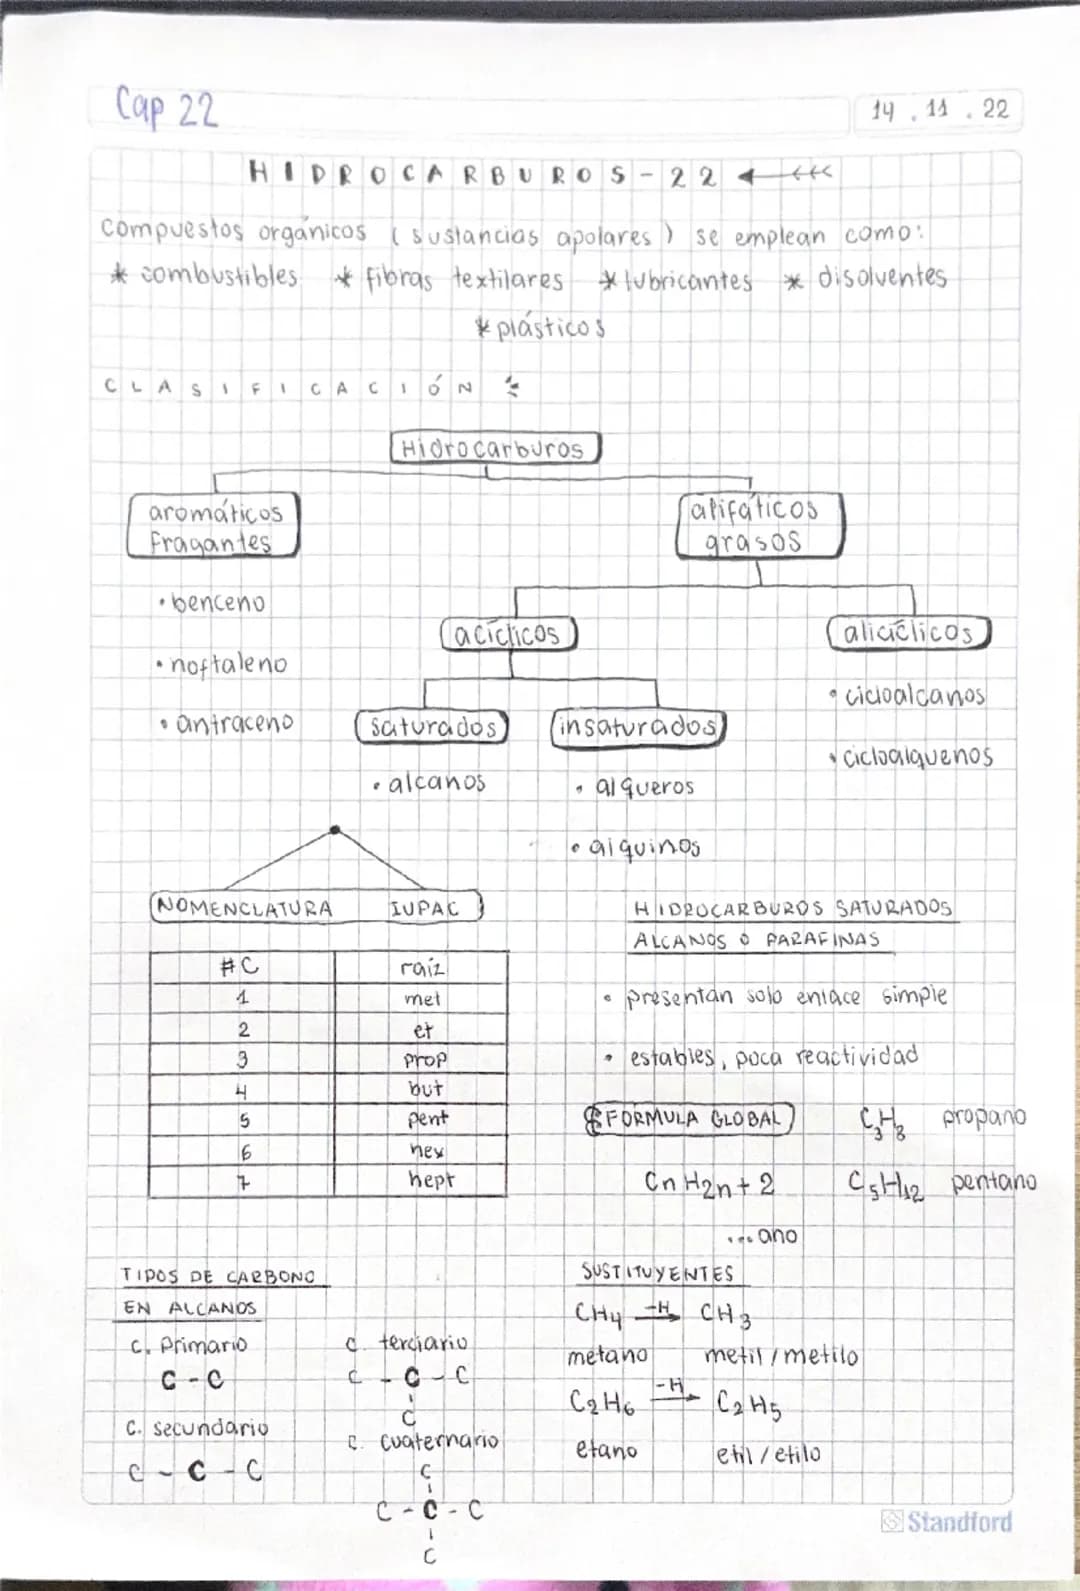 Cap 22
14 . 11 . 22
HIDROCARBUROS-22
compuestos orgánicos (sustancias apolares) se emplean como:
* combustibles * fibras textilares * lubricantes * disolventes
* plásticos
CLASIFICACIÓN
Hidrocarburos
aromáticos
Fragantes
alifáticos
grasos
• benceno
• noftaleno
• antraceno
acíclicos
alicíclicos
• cicloalcanos
• cicloalquenos
saturados
insaturados
• alcanos
• alqueros
• alquinos
NOMENCLATURA IUPAC
#C raíz
1 met
2 et
3 prop
4 but
5 pent
6 hex
7 hept
HIDROCARBUROS SATURADOS
ALCANOS O PARAFINAS
• presentan solo enlace simple
• estables, poca reactividad
FORMULA GLOBAL C3H8 propano
CnH2n+2 C5H12 pentano
... ano
TIPOS DE CARBONO
EN ALCANOS
C. Primario
C - C
C. secundario
C - C - C
C. terciario
C - C - C
C
C. cuaternario
C
C - C - C
C
SUSTITUYENTES
CH4 -H→ CH3
metano metil / metilo
C2H6 -H→ C2H5
etano etil / etilo
Standford